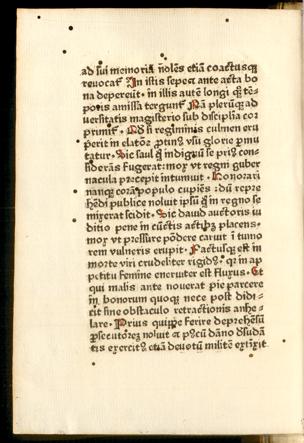 ad sui memoriā nolēs etiā coactusqꝫ
reuocat᷑. In istis sepe ante acta bo
na depereūt. in illis autē longi qꝫ tē-
poris amissa tergunt᷑. Nā plerūqꝫ ad
uersitatis magisterio sub disciplīa cor
primit᷑. Qd si regiminis culmen eru
perit in elatōeꝫ ptinꝰ vsu glorie pmu
tatur. Sic saul qꝫ indignū se priꝰ con-
siderās fugerat: mox vt regni guber
nacula p̄cepit intumuit. Honorari
nanqꝫ corā populo cupiēs: dū repre
hēdi publice noluit ipsū qꝫ in regno se
vnxerat scidit. Sic dauid auctoris iu
ditio pene in cūctis actibꝫ placens.
mox vt pressure pōdere caruit ī tumo
rem vulneris erupit. Factusqꝫ est in
morte viri crudeliter rigidꝰ. qꝛ in ap
petitu femine eneruiter est fluxus. Et
qui malis ante nouerat pie parcere
in bonorum quoqꝫ nece post didi-
cit sine obstaculo retractionis anhe-
lare. Prius quippe ferire deprehēsū
ꝑsecutorē noluit et pꝰ cū dāno dsudā
tis exercitꝰ etiā deuotū militē extīxit.